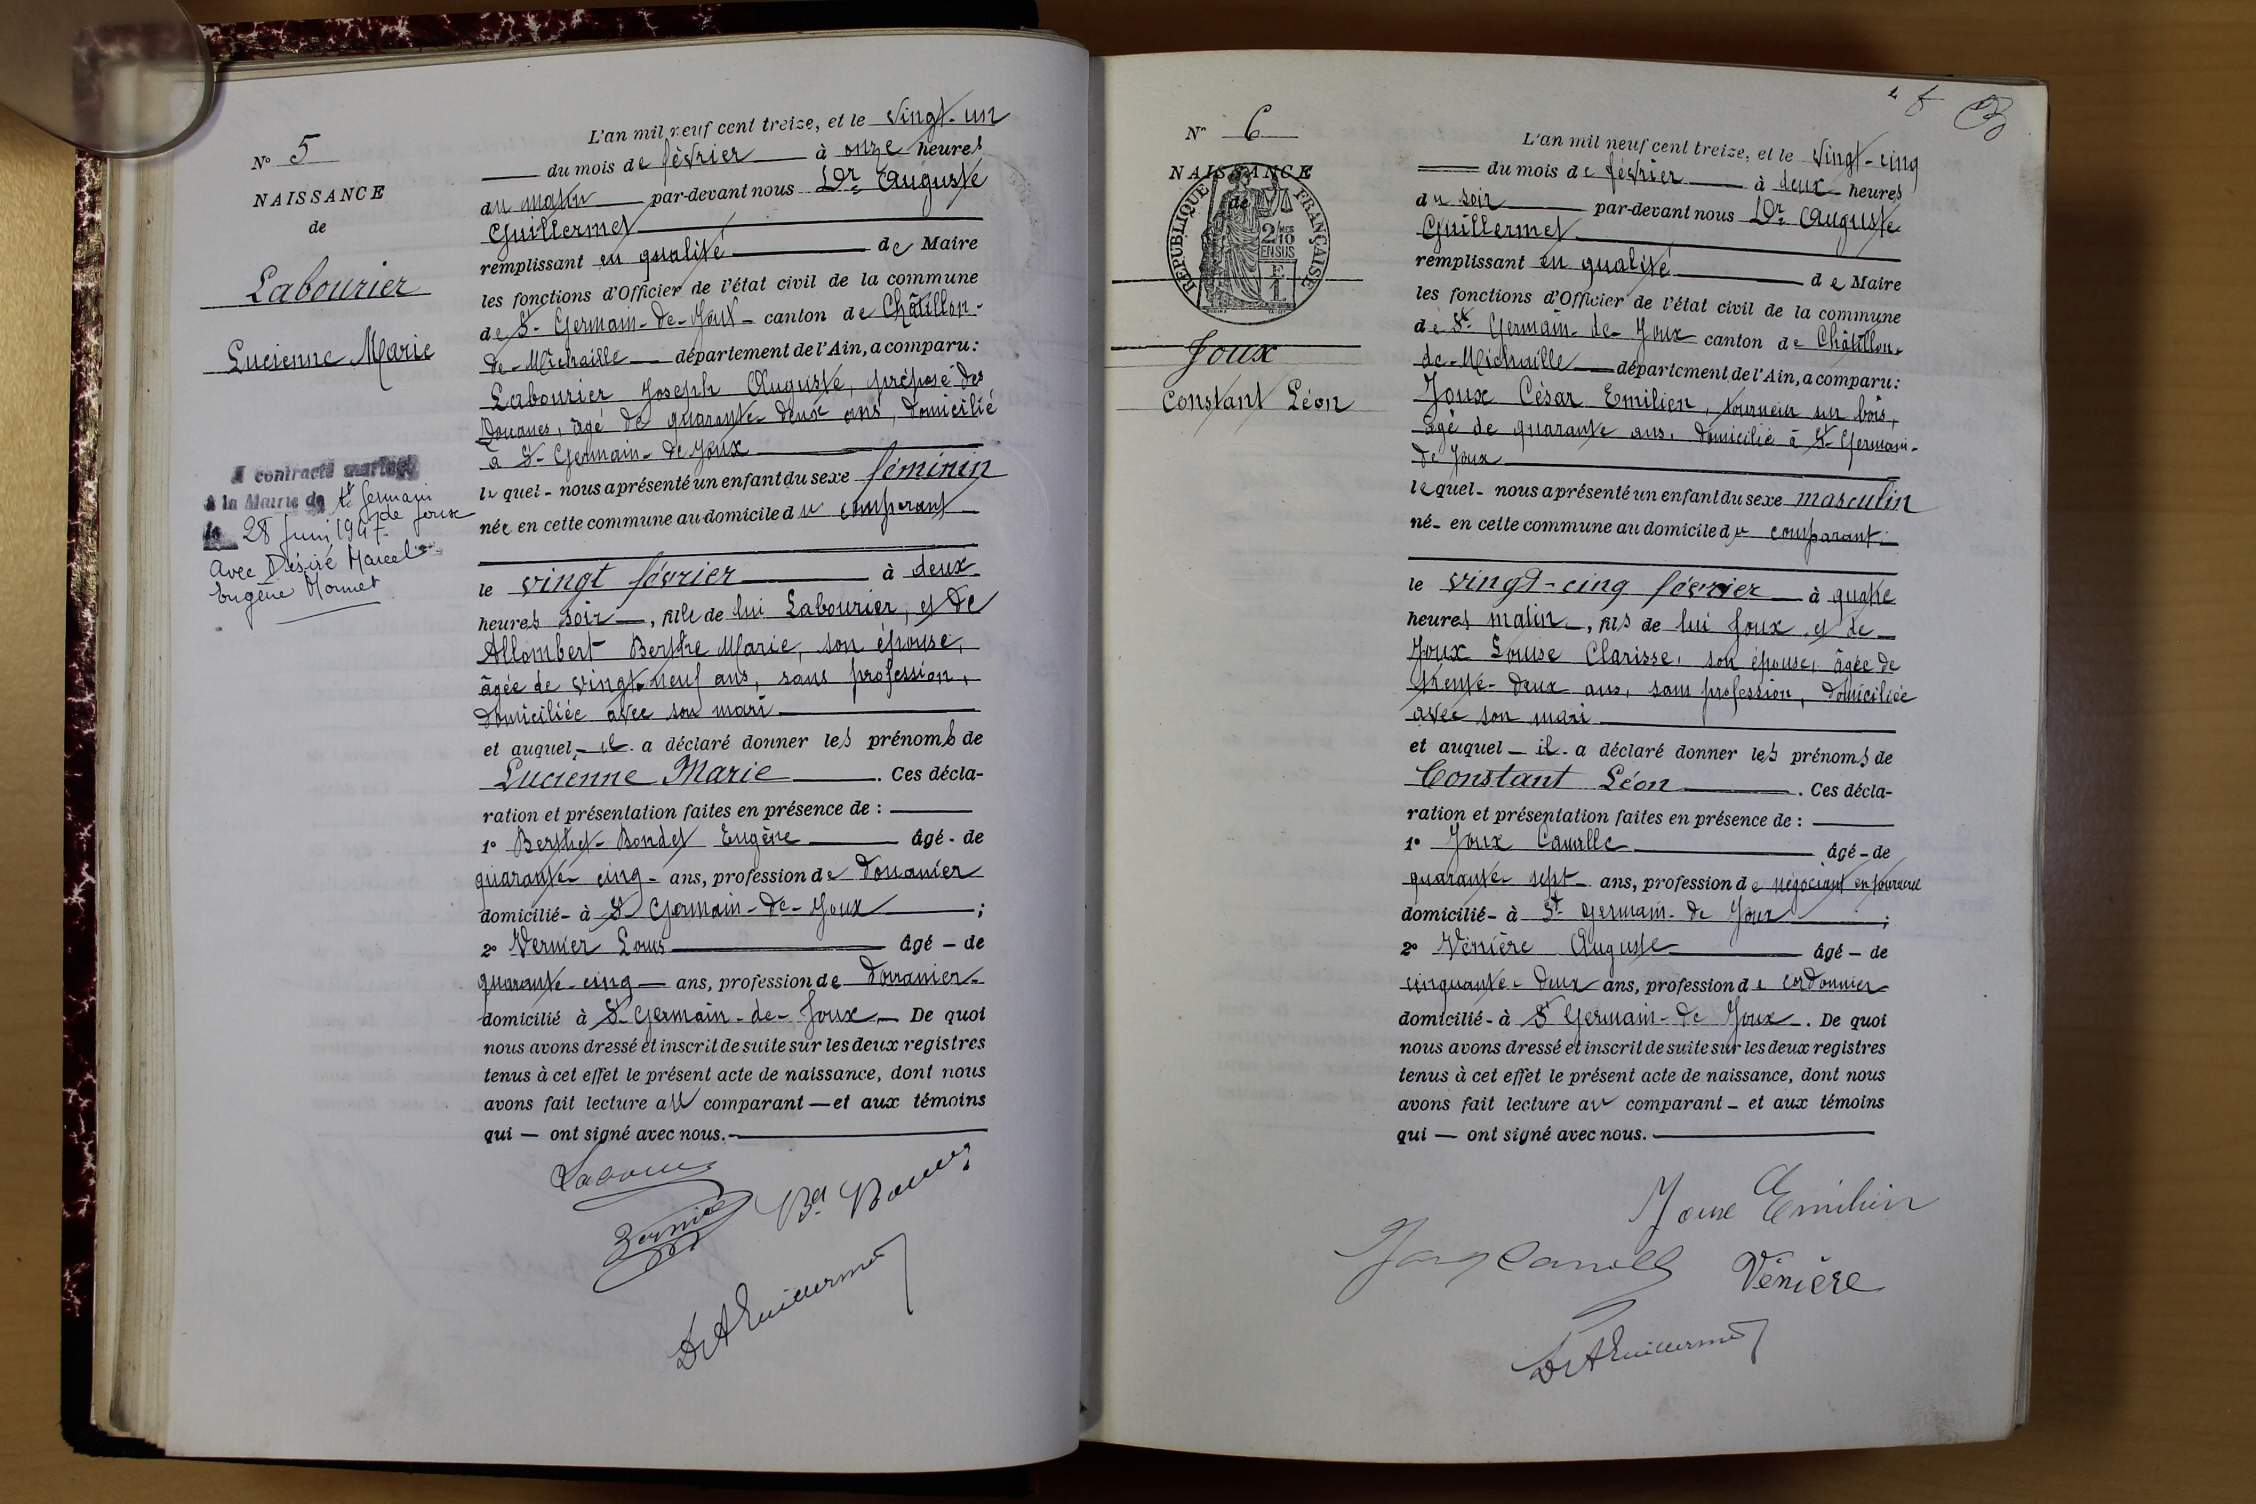 N° 5
NAISSANCE
de
Labourier
Lucienne Marie
A contracté mariage
à la Mairie de St Germain
de Joux
le 28 Juin 1947
avec Désiré Marcel
Eugène Monnet
L'an mil neuf cent treize, et le vingt-un
du mois de février à onze heures
du matin par-devant nous Dr Auguste
Guillermet
remplissant en qualité de Maire
les fonctions d'Officier de l'état civil de la commune
de St-Germain-de-Joux canton de Châtillon-
de-Michaille département de l'Ain, a comparu:
Labourier Joseph Auguste, préposé des
Douanes, âgé de quarante-deux ans, domicilié
à St-Germain-de Joux
lequel nous a présenté un enfant du sexe féminin
née en cette commune au domicile du comparant
le vingt février à deux
heures soir, fille de lui Labourier, et de
Allombert Berthe Marie, son épouse,
âgée de vingt-neuf ans, sans profession,
domiciliée avec son mari
et auquel il a déclaré donner les prénoms de
Lucienne Marie. Ces décla-
ration et présentation faites en présence de :
1° Berthet-Bondet Eugène âgé de
quarante-cinq ans, profession de Douanier
domicilié à St Germain-de-Joux ;
2° Vernier Louis âgé de
quarante-cinq ans, profession de Douanier
domicilié à St-Germain-de-Joux. De quoi
nous avons dressé et inscrit de suite sur les deux registres
tenus à cet effet le présent acte de naissance, dont nous
avons fait lecture au comparant et aux témoins
qui ont signé avec nous.
Vernier
Dr A Guillermet
N° 6
NAISSANCE
de
RÉPUBLIQUE FRANÇAISE
2/10 MES
EN SUS
Joux
Constant Léon
L'an mil neuf cent treize, et le vingt-cinq
du mois de février à deux heures
du soir par-devant nous Dr Auguste
Guillermet
remplissant en qualité de Maire
les fonctions d'Officier de l'état civil de la commune
de St Germain-de-Joux canton de Châtillon-
de-Michaille département de l'Ain, a comparu:
Joux César Emilien, tourneur sur bois,
âgé de quarante ans, domicilié à St-Germain-
de Joux
lequel nous a présenté un enfant du sexe masculin
né en cette commune au domicile du comparant
le vingt-cinq février à quatre
heures matin, fils de lui Joux et de
Joux Louise Clarisse, son épouse, âgée de
trente-deux ans, sans profession, domiciliée
avec son mari
et auquel il a déclaré donner les prénoms de
Constant Léon. Ces décla-
ration et présentation faites en présence de :
1° Joux Camille âgé de
quarante-sept ans, profession de négociant en tournerie
domicilié à St Germain-de Joux ;
2° Vénière Auguste âgé de
cinquante-deux ans, profession de cordonnier
domicilié à St Germain-de Joux. De quoi
nous avons dressé et inscrit de suite sur les deux registres
tenus à cet effet le présent acte de naissance, dont nous
avons fait lecture au comparant et aux témoins
qui ont signé avec nous.
Joux Emilien
Joux Camille
Vénière
Dr A Guillermet